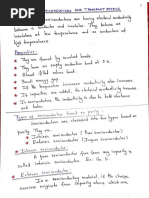 SEMICONDUCTORS AND TRANSPORT PHYSICS
Semiconductors are having electrical conductivity
between a conductor and insulator. They behave as
insulators at low temperatures and as conductors at
high temperatures.
Properties:-
They are formed by covalent bonds.
They have an empty conduction band at 0 K
Almost filled valence band
Small energy gap
If temperature increases conductivity also increases
If impurities are added, conductivity also increases
In semiconductors, the conductivity is due to both
electrons and holes.
Types of Semiconductors based on purity:-
Semiconductors are classified into two types based on
purity. They are:-
Intrinsic Semiconductors (Pure Semiconductors)
Extrinsic Semiconductors (Impure Semiconductors)
Intrinsic Semiconductors:-
A pure semiconductor free from any impurity is
called intrinsic semiconductor. Ex: Si, Ge
Extrinsic Semiconductor:-
Semiconducting material, in which the charge
carriers originate from impurity atoms which are